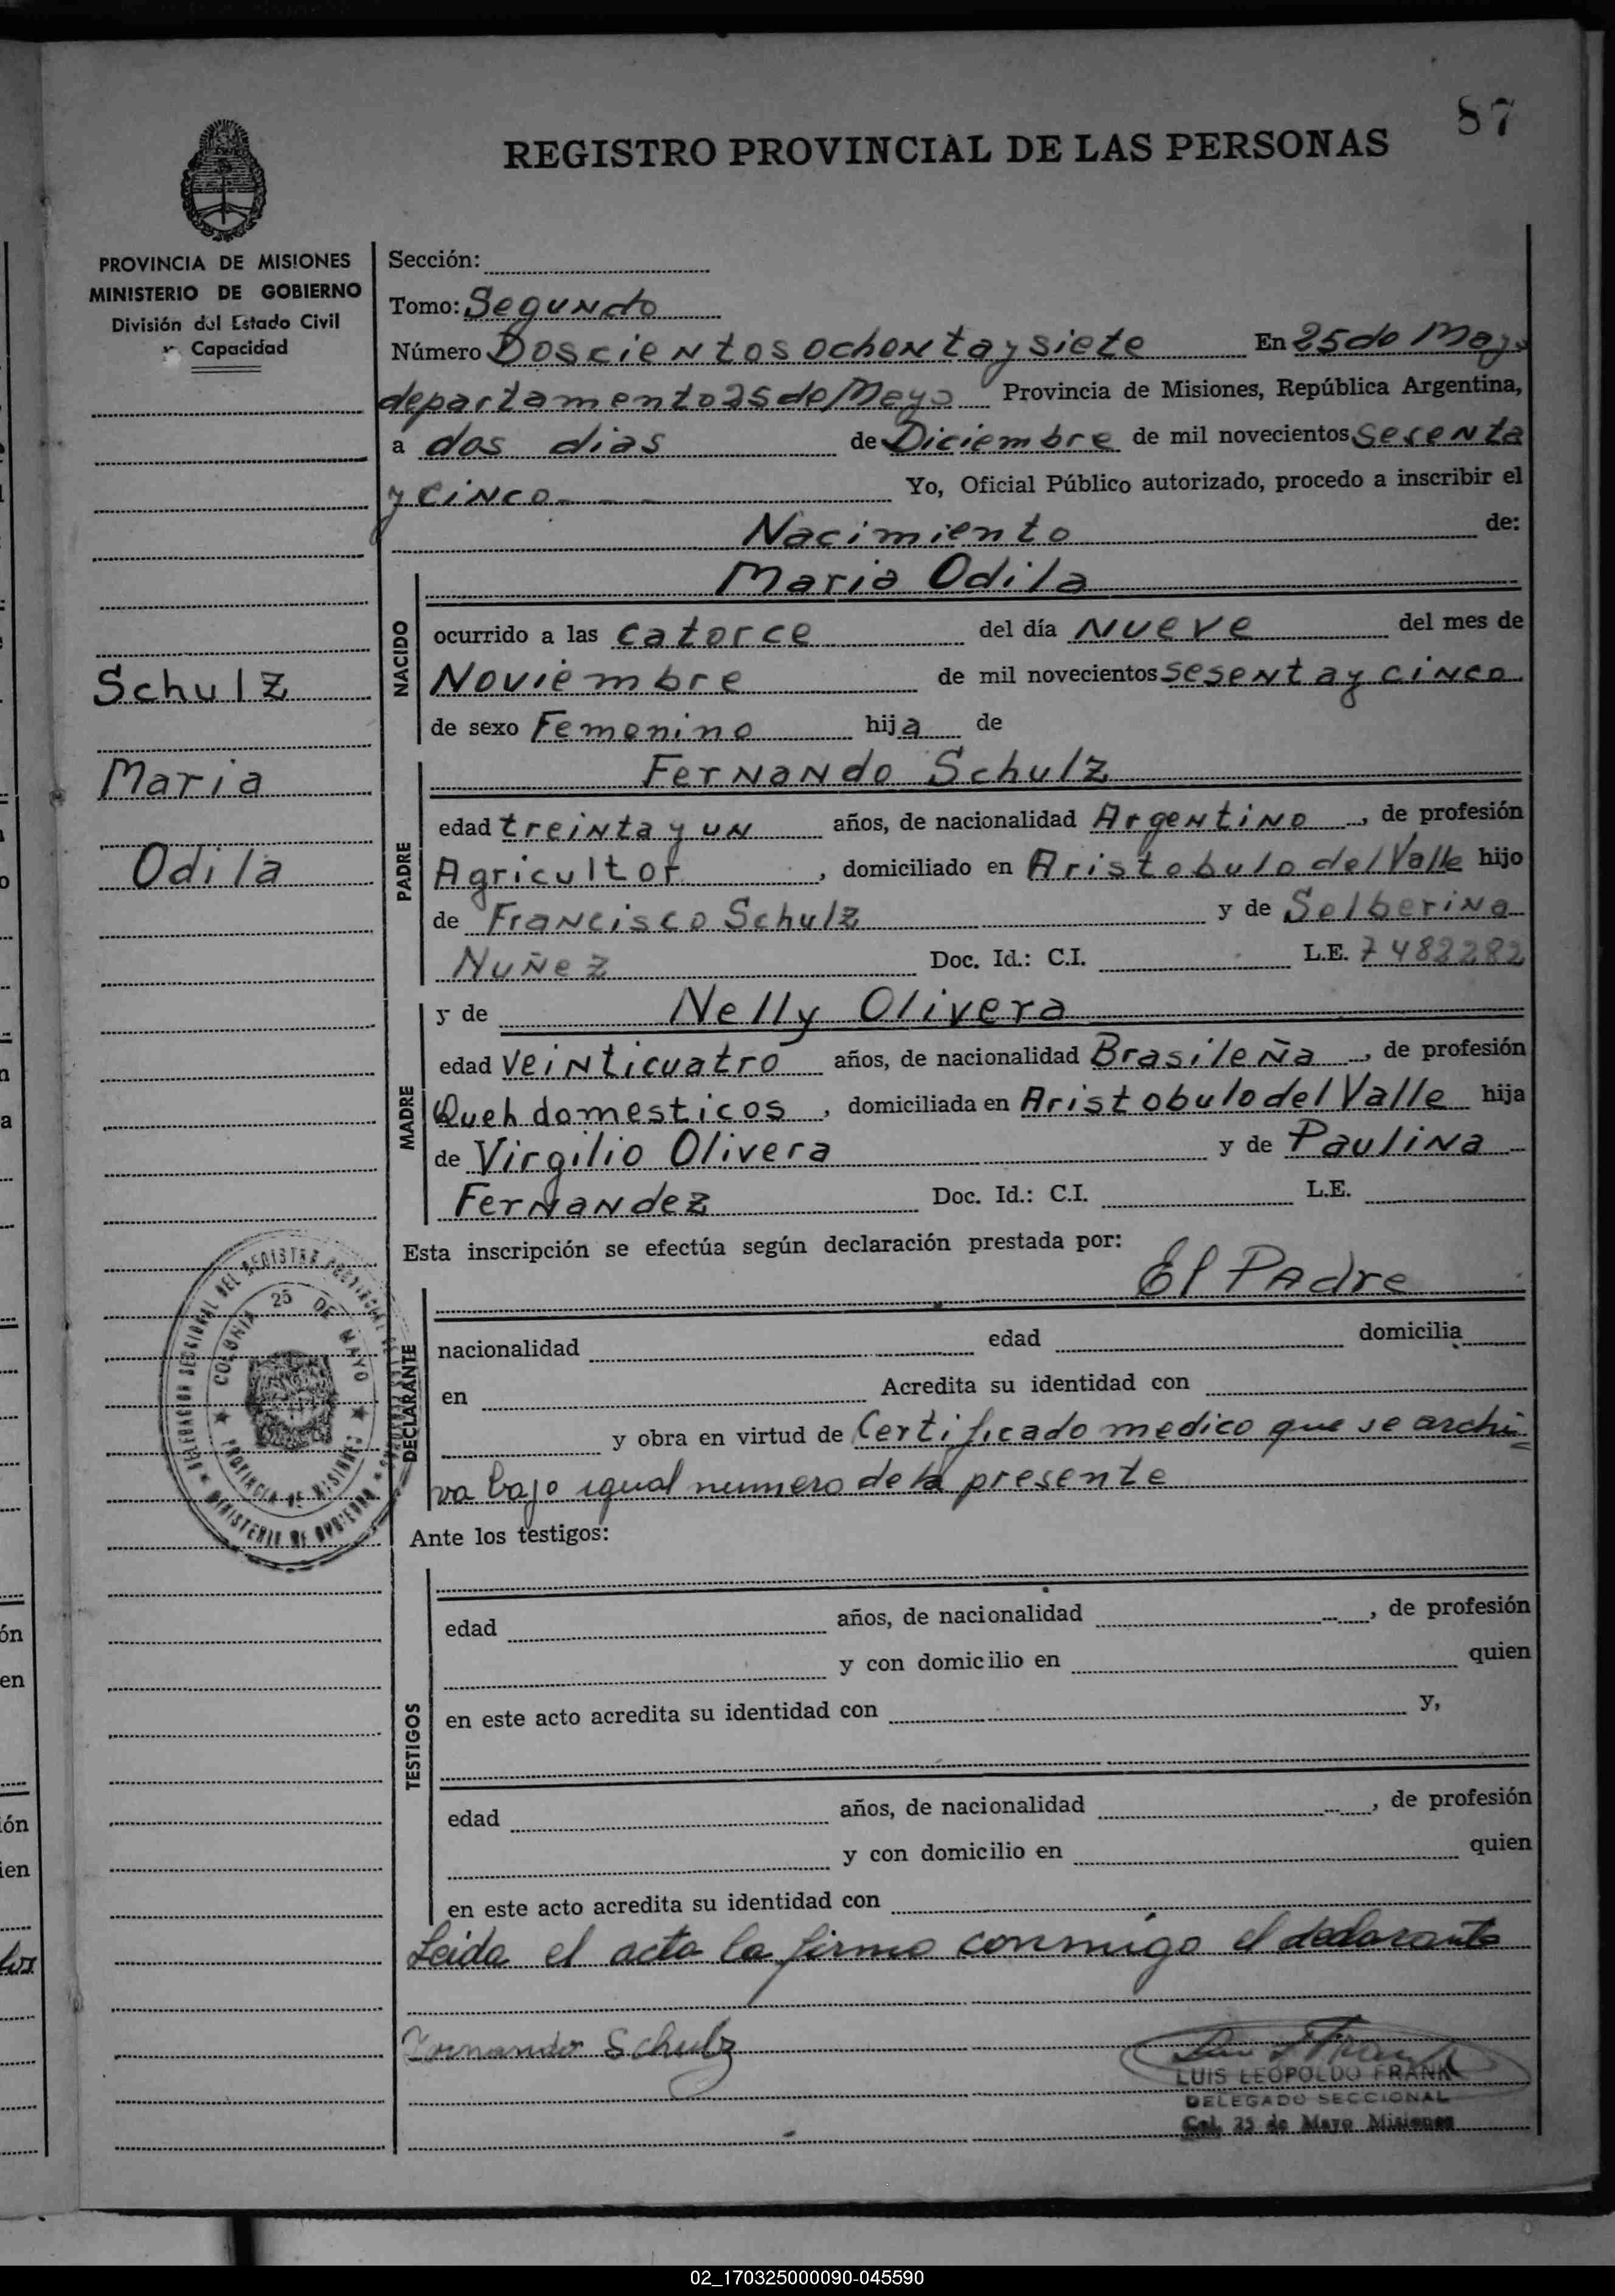 87
REGISTRO PROVINCIAL DE LAS PERSONAS
PROVINCIA DE MISIONES
MINISTERIO DE GOBIERNO
División del Estado Civil
y Capacidad
Schulz
Maria
Odila
Sección:
Tomo: Segundo
Número Doscientos ochenta y siete En 25 de Mayo
departamento 25 de Mayo Provincia de Misiones, República Argentina,
a dos dias de Diciembre de mil novecientos Sesenta
y cinco Yo, Oficial Público autorizado, procedo a inscribir el
Nacimiento de:
NACIDO
Maria Odila
ocurrido a las catorce del día Nueve del mes de
Noviembre de mil novecientos sesenta y cinco
de sexo Femenino hija de
PADRE
Fernando Schulz
edad treinta y un años, de nacionalidad Argentino, de profesión
Agricultor, domiciliado en Aristobulo del Valle hijo
de Francisco Schulz y de Selberina
Nuñez Doc. Id.: C.I. L.E. 7482282
MADRE
y de Nelly Olivera
edad veinticuatro años, de nacionalidad Brasileña, de profesión
Queh domesticos, domiciliada en Aristobulo del Valle hija
de Virgilio Olivera y de Paulina
Fernandez Doc. Id.: C.I. L.E.
Esta inscripción se efectúa según declaración prestada por:
DECLARANTE
El Padre
nacionalidad edad domicilia
en Acredita su identidad con
y obra en virtud de Certificado medico que se archi
va bajo igual numero de la presente
COLONIA 25 DE MAYO
PROVINCIA DE MISIONES
Ante los testigos:
TESTIGOS
edad años, de nacionalidad , de profesión
y con domicilio en quien
en este acto acredita su identidad con y,
edad años, de nacionalidad , de profesión
y con domicilio en quien
en este acto acredita su identidad con
Leida el acta la firma conmigo el declarante
Fernando Schulz
LUIS LEOPOLDO FRANK
DELEGADO SECCIONAL
Col. 25 de Mayo Misiones
02_170325000090-045590